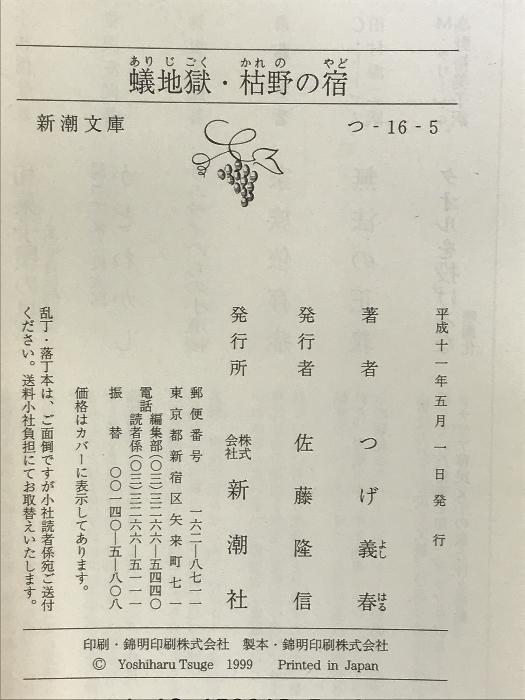 ありじごく かれの やど
蟻地獄・枯野の宿
新潮文庫 つ-16-5
平成十一年五月一日発行
著者 つげ義春
よし はる
発行者 佐藤隆信
発行所 株式会社 新潮社
郵便番号 一六二―八七一一
東京都新宿区矢来町七一
電話 編集部(〇三)三二六六―五四四〇
読者係(〇三)三二六六―五一一一
振替 〇〇一四〇―五―八〇八
価格はカバーに表示してあります。
乱丁・落丁本は、ご面倒ですが小社読者係宛ご送付
ください。送料小社負担にてお取替えいたします。
印刷・錦明印刷株式会社 製本・錦明印刷株式会社
© Yoshiharu Tsuge 1999 Printed in Japan